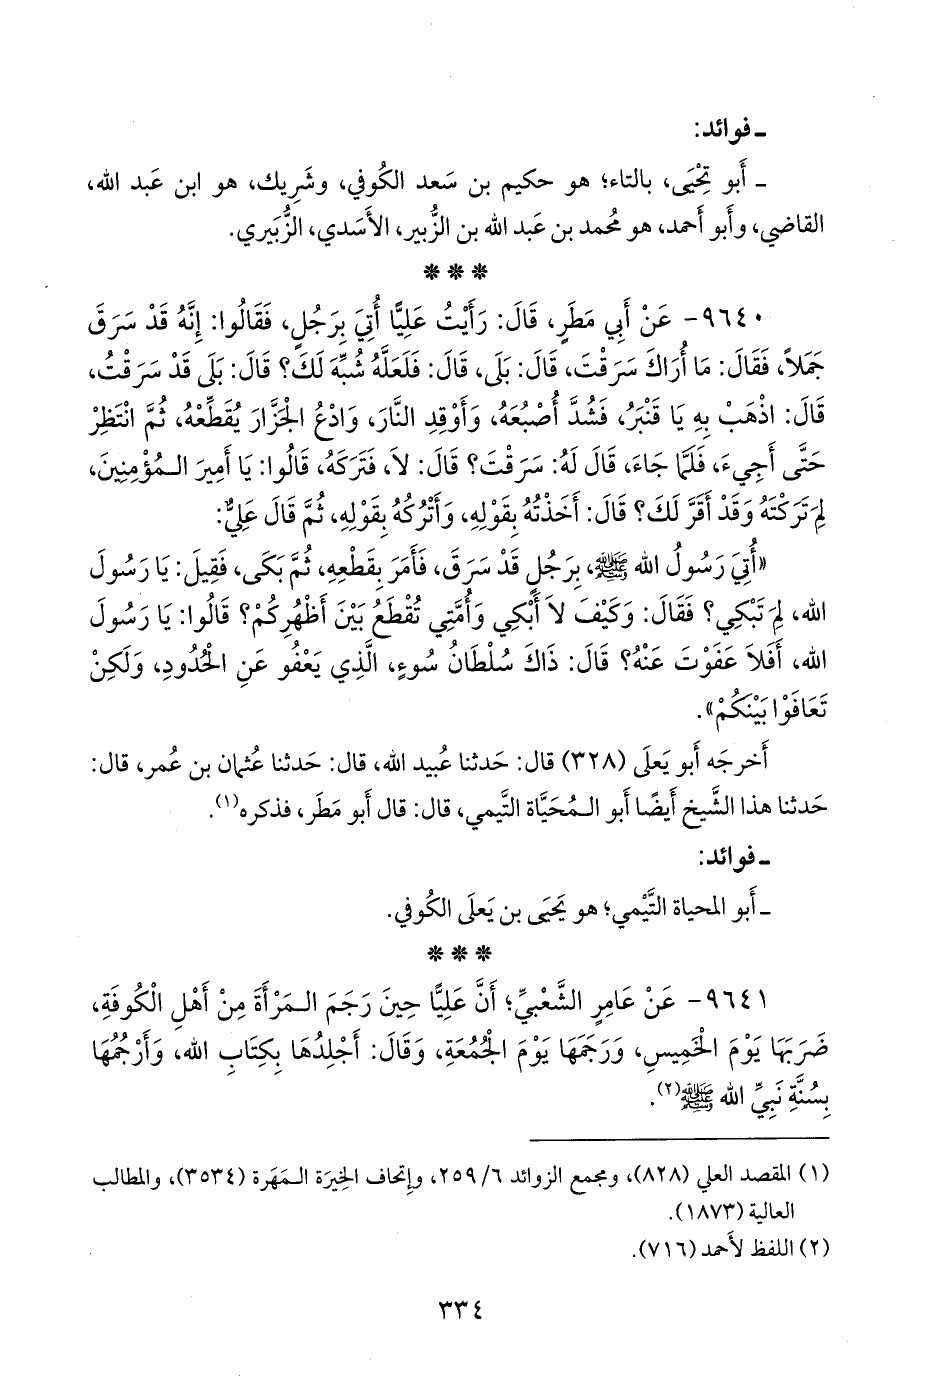 ـ فوائد:
ـ أَبو تِحْيَى، بالتاء؛ هو حكيم بن سَعد الكُوفي، وشَرِيك، هو ابن عَبد الله،
القاضي، وأَبو أَحمد، هو مُحمد بن عَبد الله بن الزُّبير، الأَسدي، الزُّبَيري.
***
٩٦٤٠- عَنْ أَبِي مَطَرٍ، قَالَ: رَأَيْتُ عَلِيًّا أُتِيَ بِرَجُلٍ، فَقَالُوا: إِنَّهُ قَدْ سَرَقَ
جَمَلاً، فَقَالَ: مَا أُرَاكَ سَرَقْتَ، قَالَ: بَلَى، قَالَ: فَلَعَلَّهُ شُبِّهَ لَكَ؟ قَالَ: بَلَى قَدْ سَرَقْتُ،
قَالَ: اذْهَبْ بِهِ يَا قَنْبَرُ، فَشُدَّ أُصْبُعَهُ، وَأَوْقِدِ النَّارَ، وَادْعُ الْجَزَّارَ يُقَطِّعْهُ، ثُمَّ انْتَظِرْ
حَتَّى أَجِيءَ، فَلَمَّا جَاءَ، قَالَ لَهُ: سَرَقْتَ؟ قَالَ: لاَ، فَتَرَكَهُ، قَالُوا: يَا أَمِيرَ الـمُؤْمِنِينَ،
لِمَ تَرَكْتَهُ وَقَدْ أَقَرَّ لَكَ؟ قَالَ: أَخَذْتُهُ بِقَوْلِهِ، وَأَتْرُكُهُ بِقَوْلِهِ، ثُمَّ قَالَ عَلِيٌّ:
«أُتِيَ رَسُولُ الله ﷺ، بِرَجُلٍ قَدْ سَرَقَ، فَأَمَرَ بِقَطْعِهِ، ثُمَّ بَكَى، فَقِيلَ: يَا رَسُولَ
الله، لِمَ تَبْكِي؟ فَقَالَ: وَكَيْفَ لاَ أَبْكِي وَأُمَّتِي تُقْطَعُ بَيْنَ أَظْهُرِكُمْ؟ قَالُوا: يَا رَسُولَ
الله، أَفَلاَ عَفَوْتَ عَنْهُ؟ قَالَ: ذَاكَ سُلْطَانُ سُوءٍ، الَّذِي يَعْفُو عَنِ الْحُدُودِ، وَلَكِنْ
تَعَافَوْا بَيْنَكُمْ».
أَخرجَه أَبو يَعلَى (٣٢٨) قال: حَدثنا عُبيد الله، قال: حَدثنا عُثمان بن عُمر، قال:
حَدثنا هذا الشَّيخ أَيضًا أَبو الـمُحَيَّاة التَّيمي، قال: قال أَبو مَطَر، فذكره(١).
ـ فوائد:
ـ أَبو المحياة التَّيْمي؛ هو يَحيَى بن يَعلَى الكُوفي.
***
٩٦٤١- عَنْ عَامِرٍ الشَّعْبِيِّ؛ أَنَّ عَلِيًّا حِينَ رَجَمَ الـمَرْأَةَ مِنْ أَهْلِ الْكُوفَةِ،
ضَرَبَهَا يَوْمَ الْخَمِيسِ، وَرَجَمَهَا يَوْمَ الْجُمُعَةِ، وَقَالَ: أَجْلِدُهَا بِكِتَابِ الله، وَأَرْجُمُهَا
بِسُنَّةِ نَبِيِّ الله ﷺ(٢).
(١) المقصد العلي (٨٢٨)، ومجمع الزوائد ٦/ ٢٥٩، وإتحاف الخِيرَة الـمَهَرة (٣٥٣٤)، والمطالب
العالية (١٨٧٣).
(٢) اللفظ لأَحمد (٧١٦).
٣٣٤